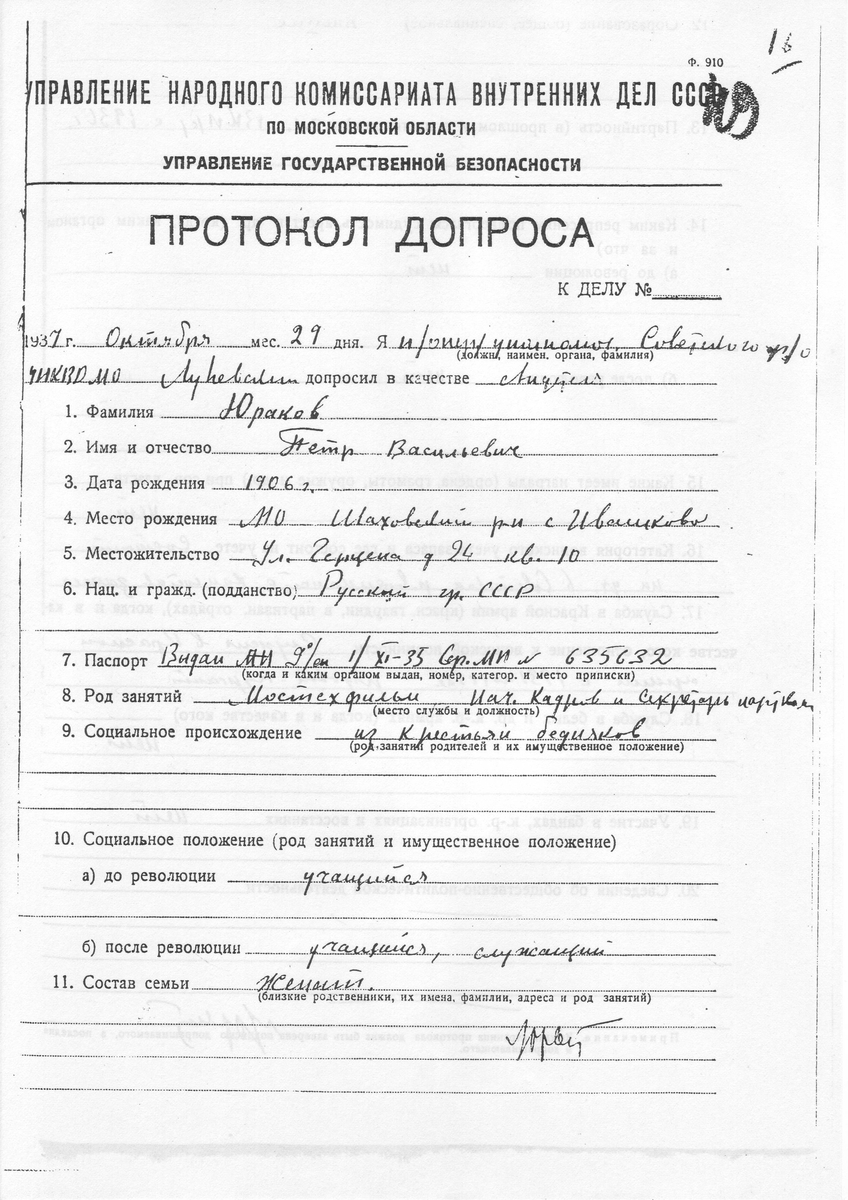 1б
Ф. 910
УПРАВЛЕНИЕ НАРОДНОГО КОМИССАРИАТА ВНУТРЕННИХ ДЕЛ СССР
ПО МОСКОВСКОЙ ОБЛАСТИ
УПРАВЛЕНИЕ ГОСУДАРСТВЕННОЙ БЕЗОПАСНОСТИ
ПРОТОКОЛ ДОПРОСА
К ДЕЛУ №
1937 г. Октября мес. 29 дня. Я Советского р/о
(должн., наимен. органа, фамилия)
УНКВД МО допросил в качестве
1. Фамилия Юраков
2. Имя и отчество Петр Васильевич
3. Дата рождения 1906 г.
4. Место рождения МО Шаховский р-н с Ивашково
5. Местожительство Ул. Герцена д 24 кв. 10
6. Нац. и гражд. (подданство) Русский гр. СССР
7. Паспорт Выдан 1/XI-35 МЮ № 635632
(когда и каким органом выдан, номер, категор. и место приписки)
8. Род занятий Мостехфильм Нач. Кадров и Секретарь парткома
(место службы и должность)
9. Социальное происхождение из крестьян бедняков
(род занятий родителей и их имущественное положение)
10. Социальное положение (род занятий и имущественное положение)
а) до революции учащийся
б) после революции учащийся, служащий
11. Состав семьи Женат.
(близкие родственники, их имена, фамилии, адреса и род занятий)